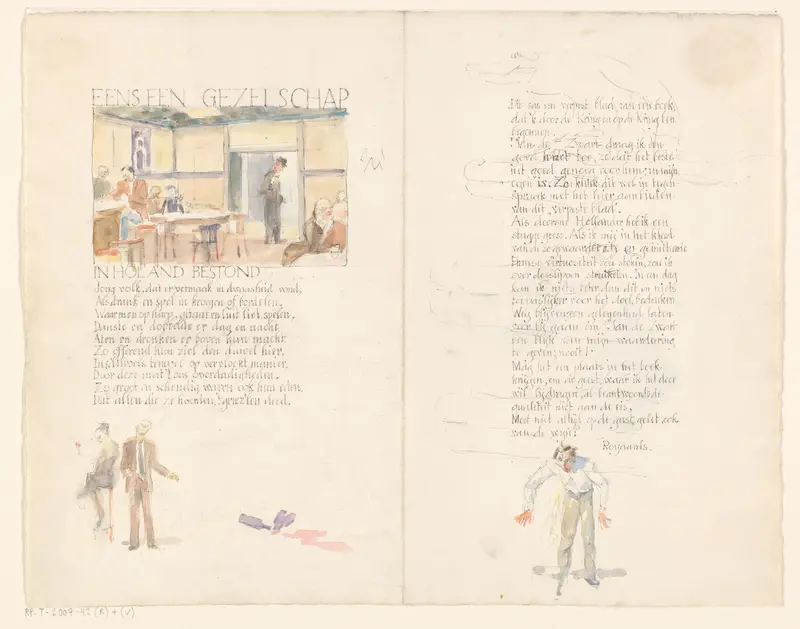 EENS EEN GEZELSCHAP
IN HOLLAND BESTOND
Jong volk, dat er vermaak in dwaasheid vond,
Als drank en spel in kroegen of bordelen,
Waar men op harp, gitaar en luit liet spelen,
Danste en dobbelde er dag en nacht
Aten en dronken er boven hun macht.
Zo offerend hun ziel den duivel hier,
In duivels tempel op vervloekt manier,
Door deze mateloos overdadigheden.
Zo groot en schendig waren ook hun eden,
Dat allen die ze hoorden, griezelen deed.
Dit was een verprutst blad, van een boek,
dat ik door de Kring en op de Kring ben
begonnen.
Jan de Zwart draag ik een
goed hart toe, zodat het beste
niet goed genoeg voor hem, in mijn
ogen is. Zo klinkt dit wel in tegen
spraak met het hier aanbieden
van dit "verpiste blad".
Als doorend Hollander heb ik een
stugge geest. Als ik nu in het kleed
van de
Franse virtuositeit zou steken, zou ik
over de slippen struikelen. In een dag
kan ik niets beter dan dit en niets
voor het doel, bedenken
Weg
voorbij gaan om Jan de Zwart
een blijk van mijn waardering
te geven; nooit!
Mag het een plaats in het boek
krijgen, en de geest, waar ik het door
wil al beantwoordt de
qualiteit niet aan de eis,
Moet niet altijd op de geest gelet ook
van de wijn?
Royaards.
RP-T-2007-42 (R) + (V)